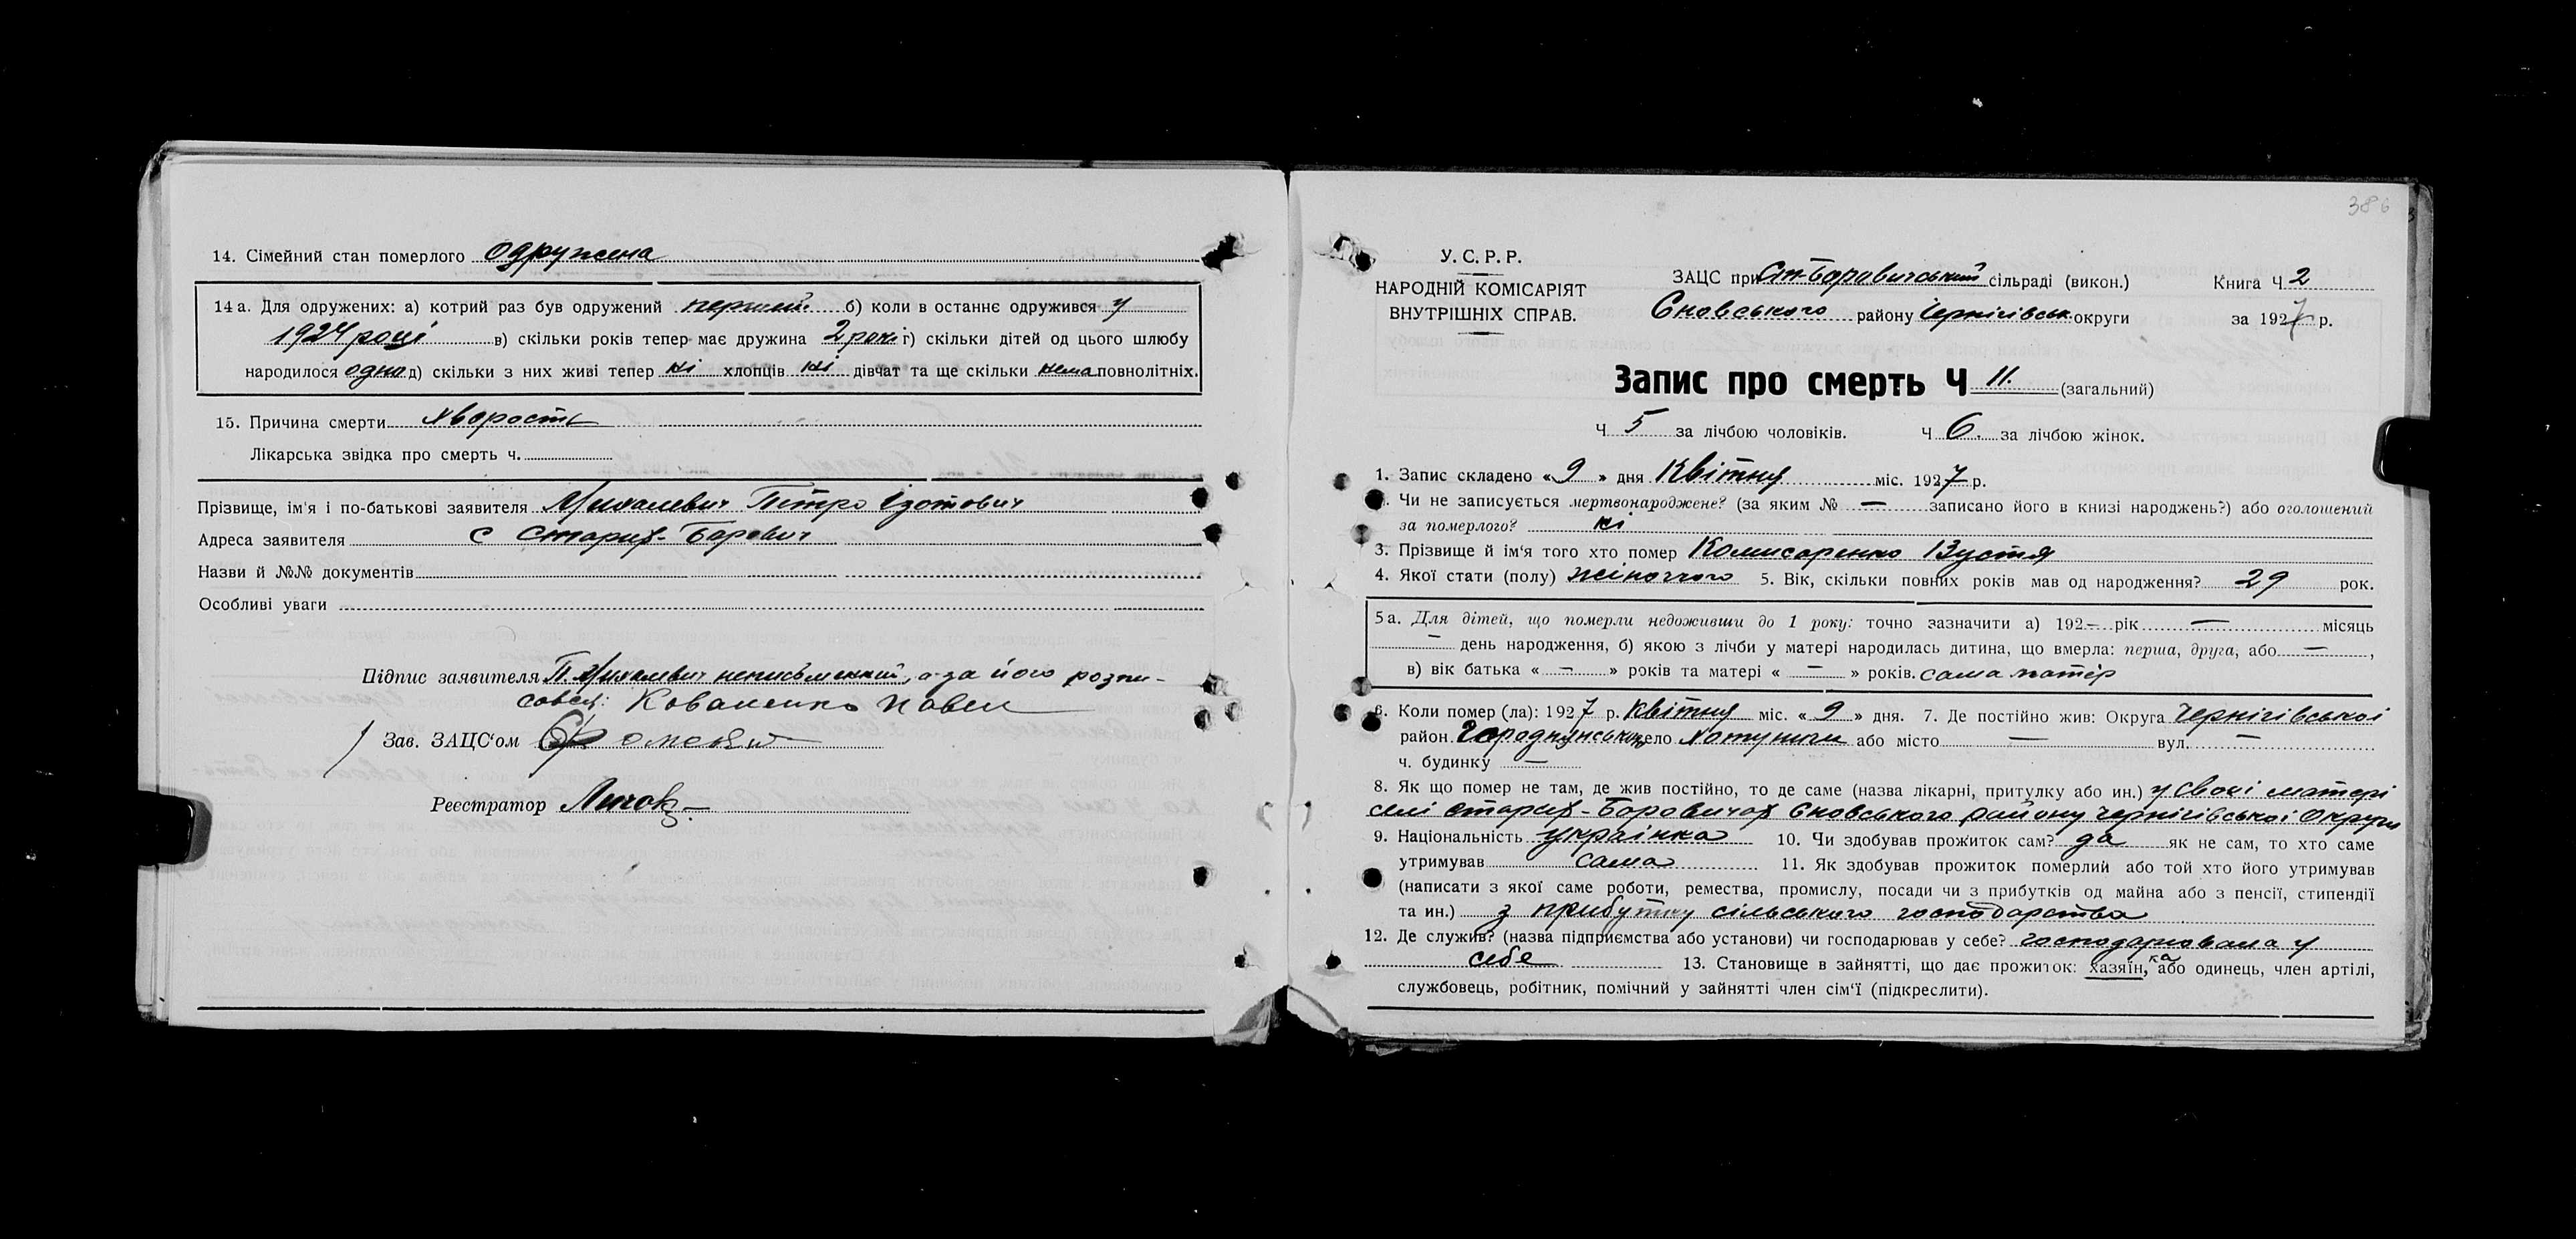 14. Сімейний стан померлого одружена
14 а. Для одружених: а) котрий раз був одружений перший б) коли в останнє одружився у
1924 році в) скільки років тепер має дружина 2 роки г) скільки дітей од цього шлюбу
народилося одно д) скільки з них живі тепер ні хлопців ні дівчат та ще скільки нема повнолітніх.
15. Причина смерти хворость
Лікарська звідка про смерть ч.
Прізвище, ім'я і по-батькові заявителя Михалевич Петро Ізотович
Адреса заявителя с Старих-Борович
Назви й №№ документів
Особливі уваги
Підпис заявителя П. Михалевич неписьменний, а за його розпи-
сався: Коваленко Павел
Зав. ЗАЦС'ом
Реєстратор
386
У. С. Р. Р.
НАРОДНІЙ КОМІСАРІЯТ
ВНУТРІШНІХ СПРАВ.
ЗАЦС при Ст-Боровичський сільраді (викон.) Книга Ч 2
Сновського району Чернігівськ округи за 1927 р.
Запис про смерть Ч 11. (загальний)
Ч 5 за лічбою чоловіків. Ч 6. за лічбою жінок.
1. Запис складено «9» дня Квітня міс. 1927 р.
Чи не записується мертвонароджене? (за яким № — записано його в книзі народжень?) або оголошений
за померлого? ні
3. Прізвище й ім'я того хто помер Комисаренко Вустя
4. Якої стати (полу) жіночого 5. Вік, скільки повних років мав од народження? 29 рок.
5 а. Для дітей, що померли недоживши до 1 року: точно зазначити а) 192— рік — місяць
— день народження, б) якою з лічби у матері народилась дитина, що вмерла: перша, друга, або — ,
в) вік батька « — » років та матері « — » років. сама матір
6. Коли помер (ла): 1927 р. Квітня міс. «9» дня. 7. Де постійно жив: Округа Чернігівської
район. Городнянськ село Хотуничи або місто — вул. —
ч. будинку —
8. Як що помер не там, де жив постійно, то де саме (назва лікарні, притулку або ин.) у свої матері
селі Старих-Боровичах Сновського району Чернігівської Округи
9. Національність українка 10. Чи здобував прожиток сам? да як не сам, то хто саме
утримував сама 11. Як здобував прожиток померлий або той хто його утримував
(написати з якої саме роботи, ремества, промислу, посади чи з прибутків од майна або з пенсії, стипендії
та ин.) з прибутку сільського господарства
12. Де служив? (назва підприємства або установи) чи господарював у себе? господарювала у
себе 13. Становище в зайнятті, що дає прожиток: хазяїн, ка або одинець, член артілі,
службовець, робітник, помічний у зайнятті член сім'ї (підкреслити).